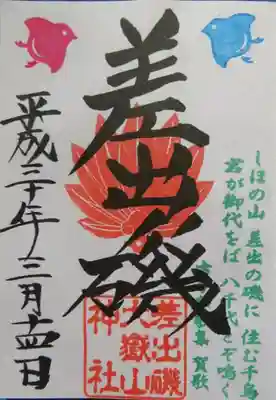 しほの山 差出の磯に 住む千鳥
君が御代をば 八千代とぞ鳴く
古今和歌集 賀歌
差出磯
差出磯
大嶽山
神社
平成三十年三月十四日